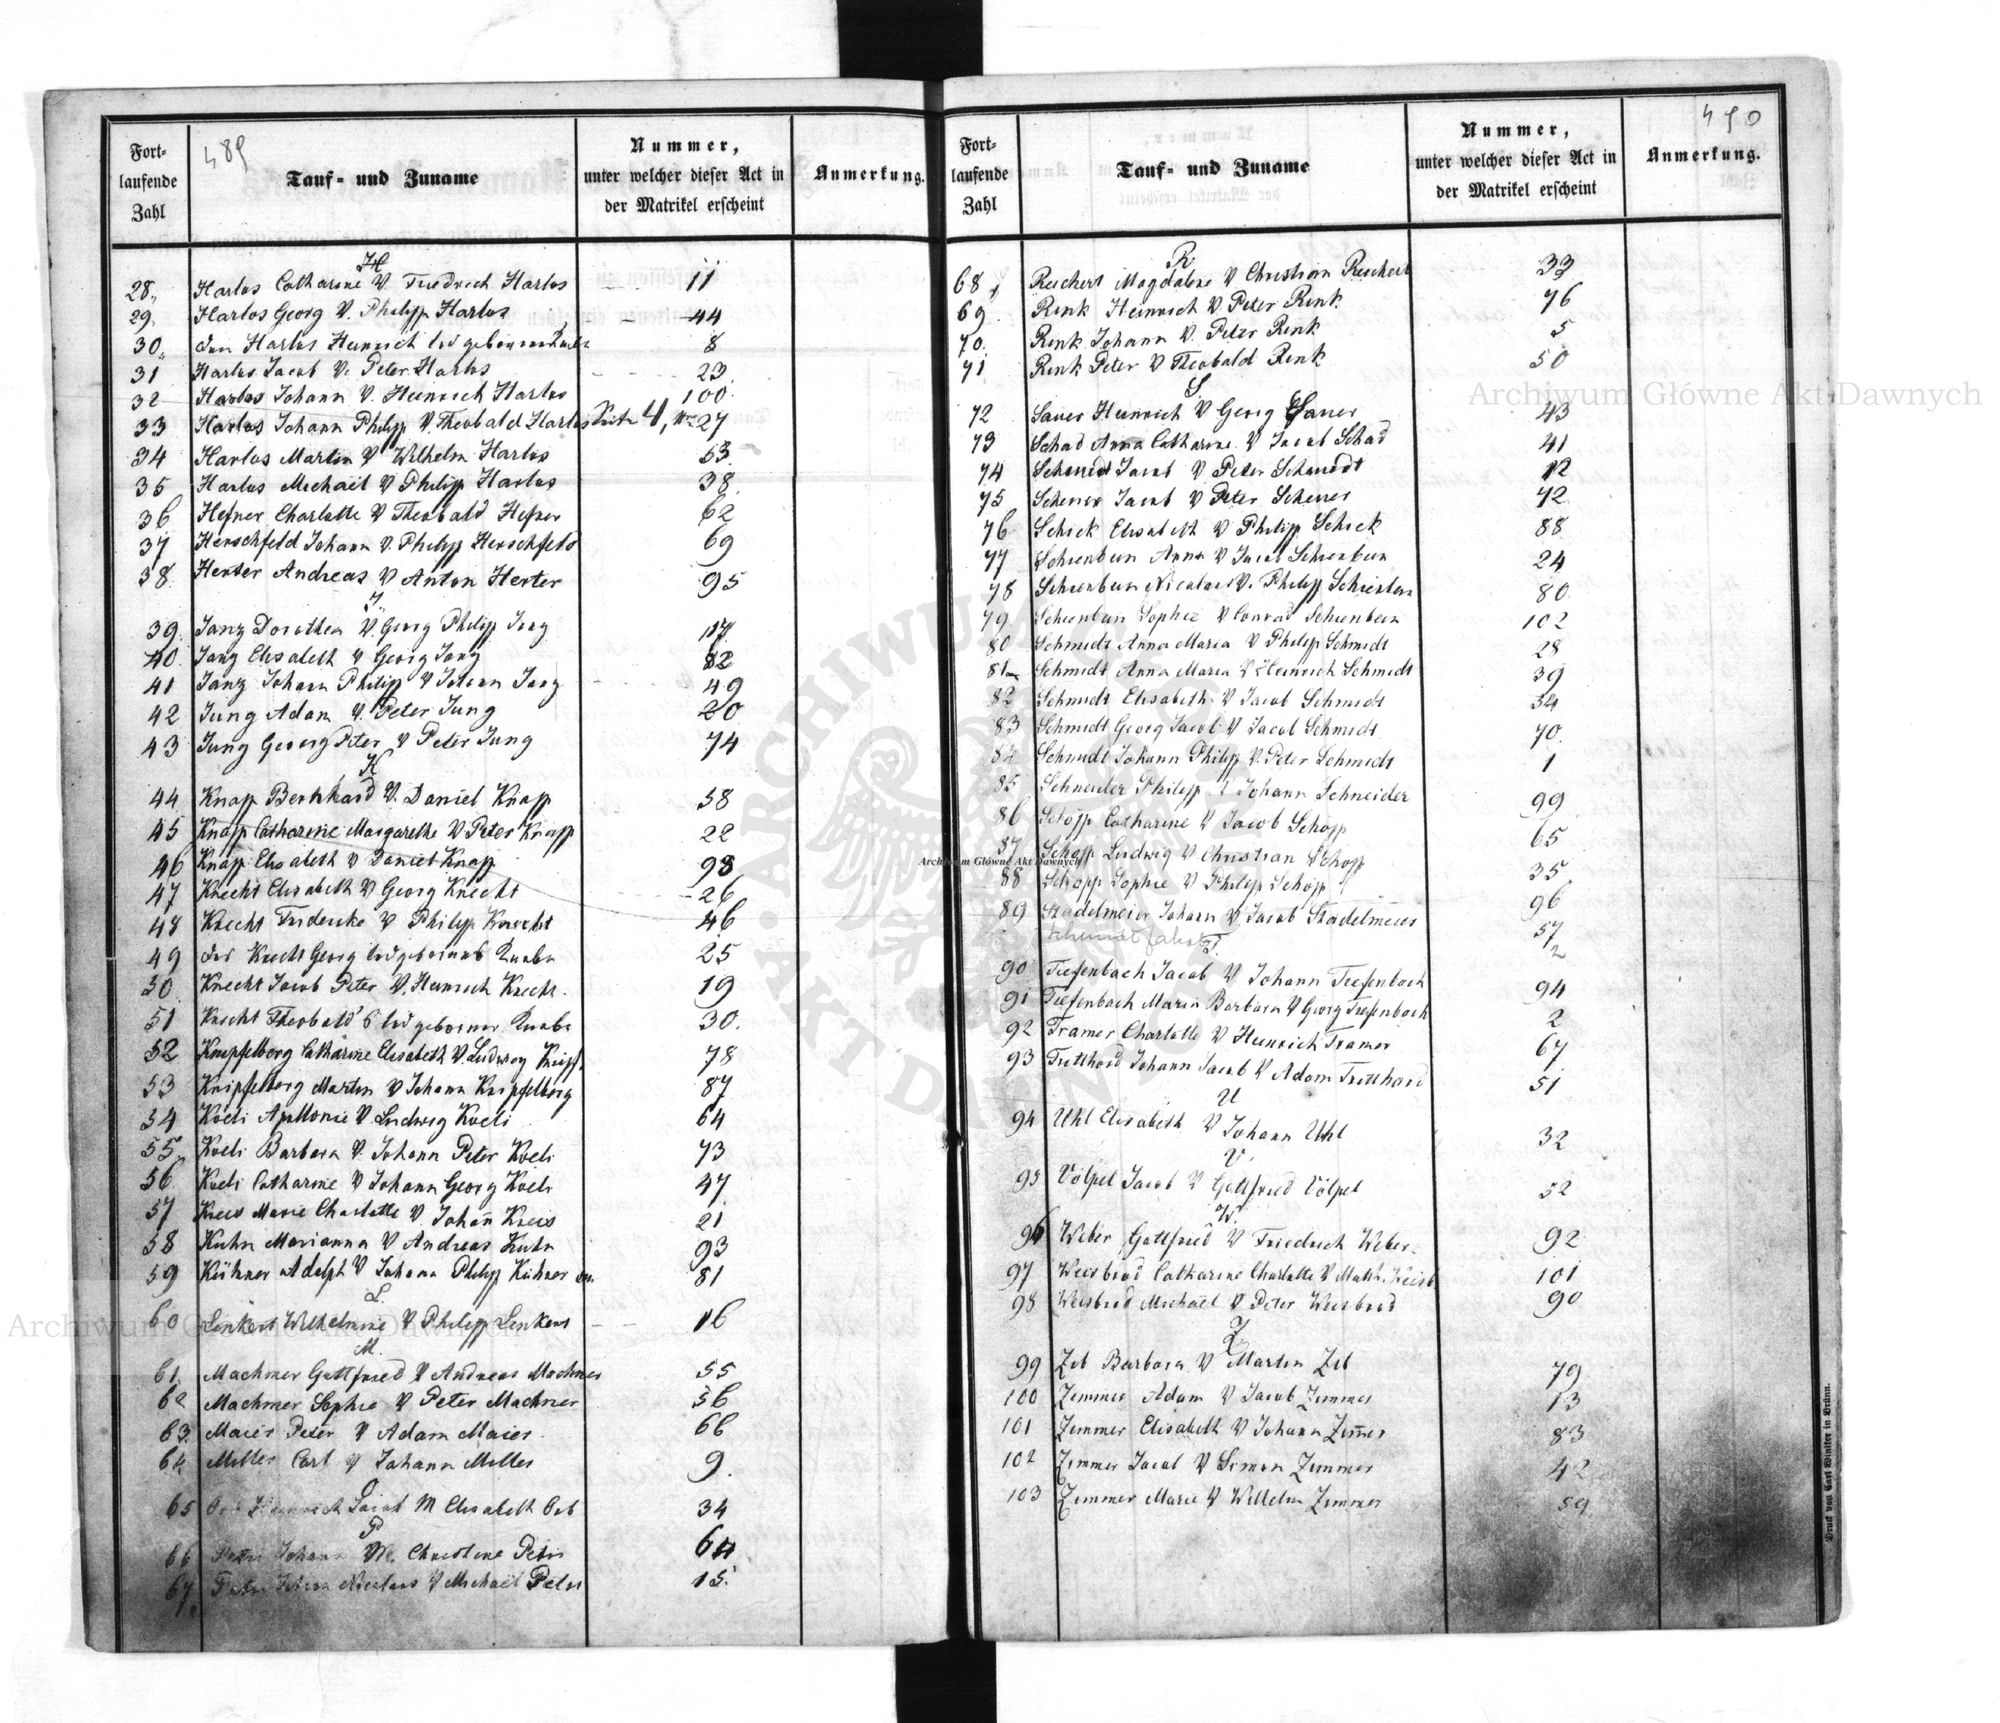 489
Fort-
laufende
Zahl
Tauf- und Zuname
Nummer,
unter welcher dieser Act in
der Matrikel erscheint
Anmerkung.
H
28. Harlos Catharine V. Friedrich Harlos 11
29. Harlos Georg V. Philipp Harlos 44
30. Harlos Heinrich 8
31 Harlos Jacob V. Peter Harlos 23
32 Harlos Johann V. Heinrich Harlos 100.
33 Harlos Johann Philipp V. Theobald Harlos 27
34 Harlos Martin V Wilhelm Harlos 53
35 Harlos Michaël V Philipp Harlos 38
36 Hefner Charlotte V Theobald Hefner 62
37 Herschfeld Johann V. Philipp Herschfeld 69
38 Herter Andreas V Anton Herter 95
J.
39. Janz Dorothea V. Georg Philipp Janz 17
40. Janz Elisabeth V Georg Janz 82
41 Janz Johann Philipp V Johann Janz 49
42 Jung Adam V. Peter Jung 20
43 Jung Georg Peter V Peter Jung 74
K
44 Knapp Bernhard V. Daniel Knapp 58
45 Knapp Catharine Margarethe V Peter Knapp 22
46 Knapp Elisabeth V Daniel Knapp 98
47 Knecht Elisabeth V Georg Knecht 26
48 Knecht Friderike V Philipp Knecht 46
49 Knecht Georg 25
50 Knecht Jacob Peter V. Heinrich Knecht. 19
51 Knecht Theobald 30.
52 Knipfelberg Catharine Elisabeth V. Ludwig 78
53 Knipfelberg Martin V Johann Knipfelberg 87
54 Koeli Apollonie V Ludwig Koeli 64
55. Koeli Barbara V. Johann Peter Koeli 73
56 Koeli Catharine V Johann Georg Koeli 47
57 Kreis Marie Charlotte V. Johann Kreis 21
58 Kuhn Marianna V Andreas Kuhn 93
59 Kühner Adolph V Johann Philipp Kühner 81
L.
60 Lenkert Wilhelmine V Philipp Lenkert 16
M.
61. Machmer Gottfried V Andreas Machmer 55
62 Machmer Sophie V Peter Machmer 56
63. Maier Peter V Adam Maier 66
64 Miller Carl V Johann Miller 9.
O
65 Jacob M Elisabeth Orb 34
P
66 Petri Johann M. Christine Petri 64
67. Petri Nicolaus V Michaël Petri 15.
490
Fort-
laufende
Zahl
Tauf- und Zuname
Nummer,
unter welcher dieser Act in
der Matrikel erscheint
Anmerkung.
R
68 Reichert Magdalene V Christian Reichert 33
69. Rink Heinrich V Peter Rink 76
70. Rink Johann V. Peter Rink 5
71 Rink Peter V Theobald Rink 50
S
72 Sauer Heinrich V Georg Sauer 43
73 Schad Anna Catharine V Jacob Schad 41
74 Schmidt Jacob V Peter Schmidt 12
75 Scherer Jacob V Peter Scherer 72
76 Schick Elisabeth V Philipp Schick 88
77 Schienbein Anna V Jacob Schienbein 24
78 Schienbein Nicolaus V. Philipp Schienbein 80
79 Schienbein Sophie V Conrad Schienbein 102
80 Schmidt Anna Maria V Philipp Schmidt 28
81 Schmidt Anna Maria V Heinrich Schmidt 39
82 Schmidt Elisabeth V Jacob Schmidt 54
83 Schmidt Georg Jacob V Jacob Schmidt 70.
84 Schmidt Johann Philipp V. Peter Schmidt 1
85 Schneider Philipp V Johann Schneider 99
86 Schöpp Catharine V Jacob Schöpp 65
87 Schöpp Ludwig V Christian Schöpp 35
88 Schöpp Sophie V Philipp Schöpp 96
89 Stadelmeier Johann V Jacob Stadelmeier 57
T. 2
90 Tiefenbach Jacob V Johann Tiefenbach 94
91 Tiefenbach Maria Barbara V Georg Tiefenbach 2
92 Tramer Charlotte V Heinrich Tramer 67
93 Tritthard Johann Jacob V Adam Tritthard 51
U
94 Uhl Elisabeth V Johann Uhl 32
V.
95 Völpel Jacob V Gottfried Völpel 52
W.
96 Weber Gottfried V Friedrich Weber 92
97 Weisbrod Catharine Charlotte V Math. Weisb 101
98 Weisbrod Michaël V Peter Weisbrod 90
Z
99 Zeb Barbara V Martin Zeb 79
100 Zimmer Adam V Jacob Zimmer 13
101 Zimmer Elisabeth V Johann Zimmer 83
102 Zimmer Jacob V Simon Zimmer 42
103 Zimmer Marie V Wilhelm Zimmer 59
Druck von Carl Winiker in Brünn.
Archiwum Główne Akt Dawnych
Archiwum Główne Akt Dawnych
Archiwum Główne Akt Dawnych
ARCHIWUM GŁÓWNE AKT DAWNYCH